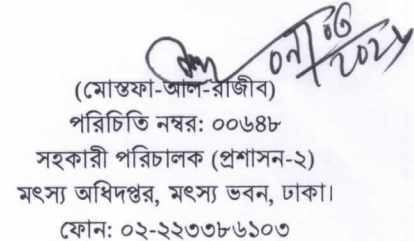 (মোস্তফা-আল-রাজীব)
পরিচিতি নম্বর: ০০৬৪৮
সহকারী পরিচালক (প্রশাসন-২)
মৎস্য অধিদপ্তর, মৎস্য ভবন, ঢাকা।
ফোন: ০২-২২৩৩৮৬১০৩